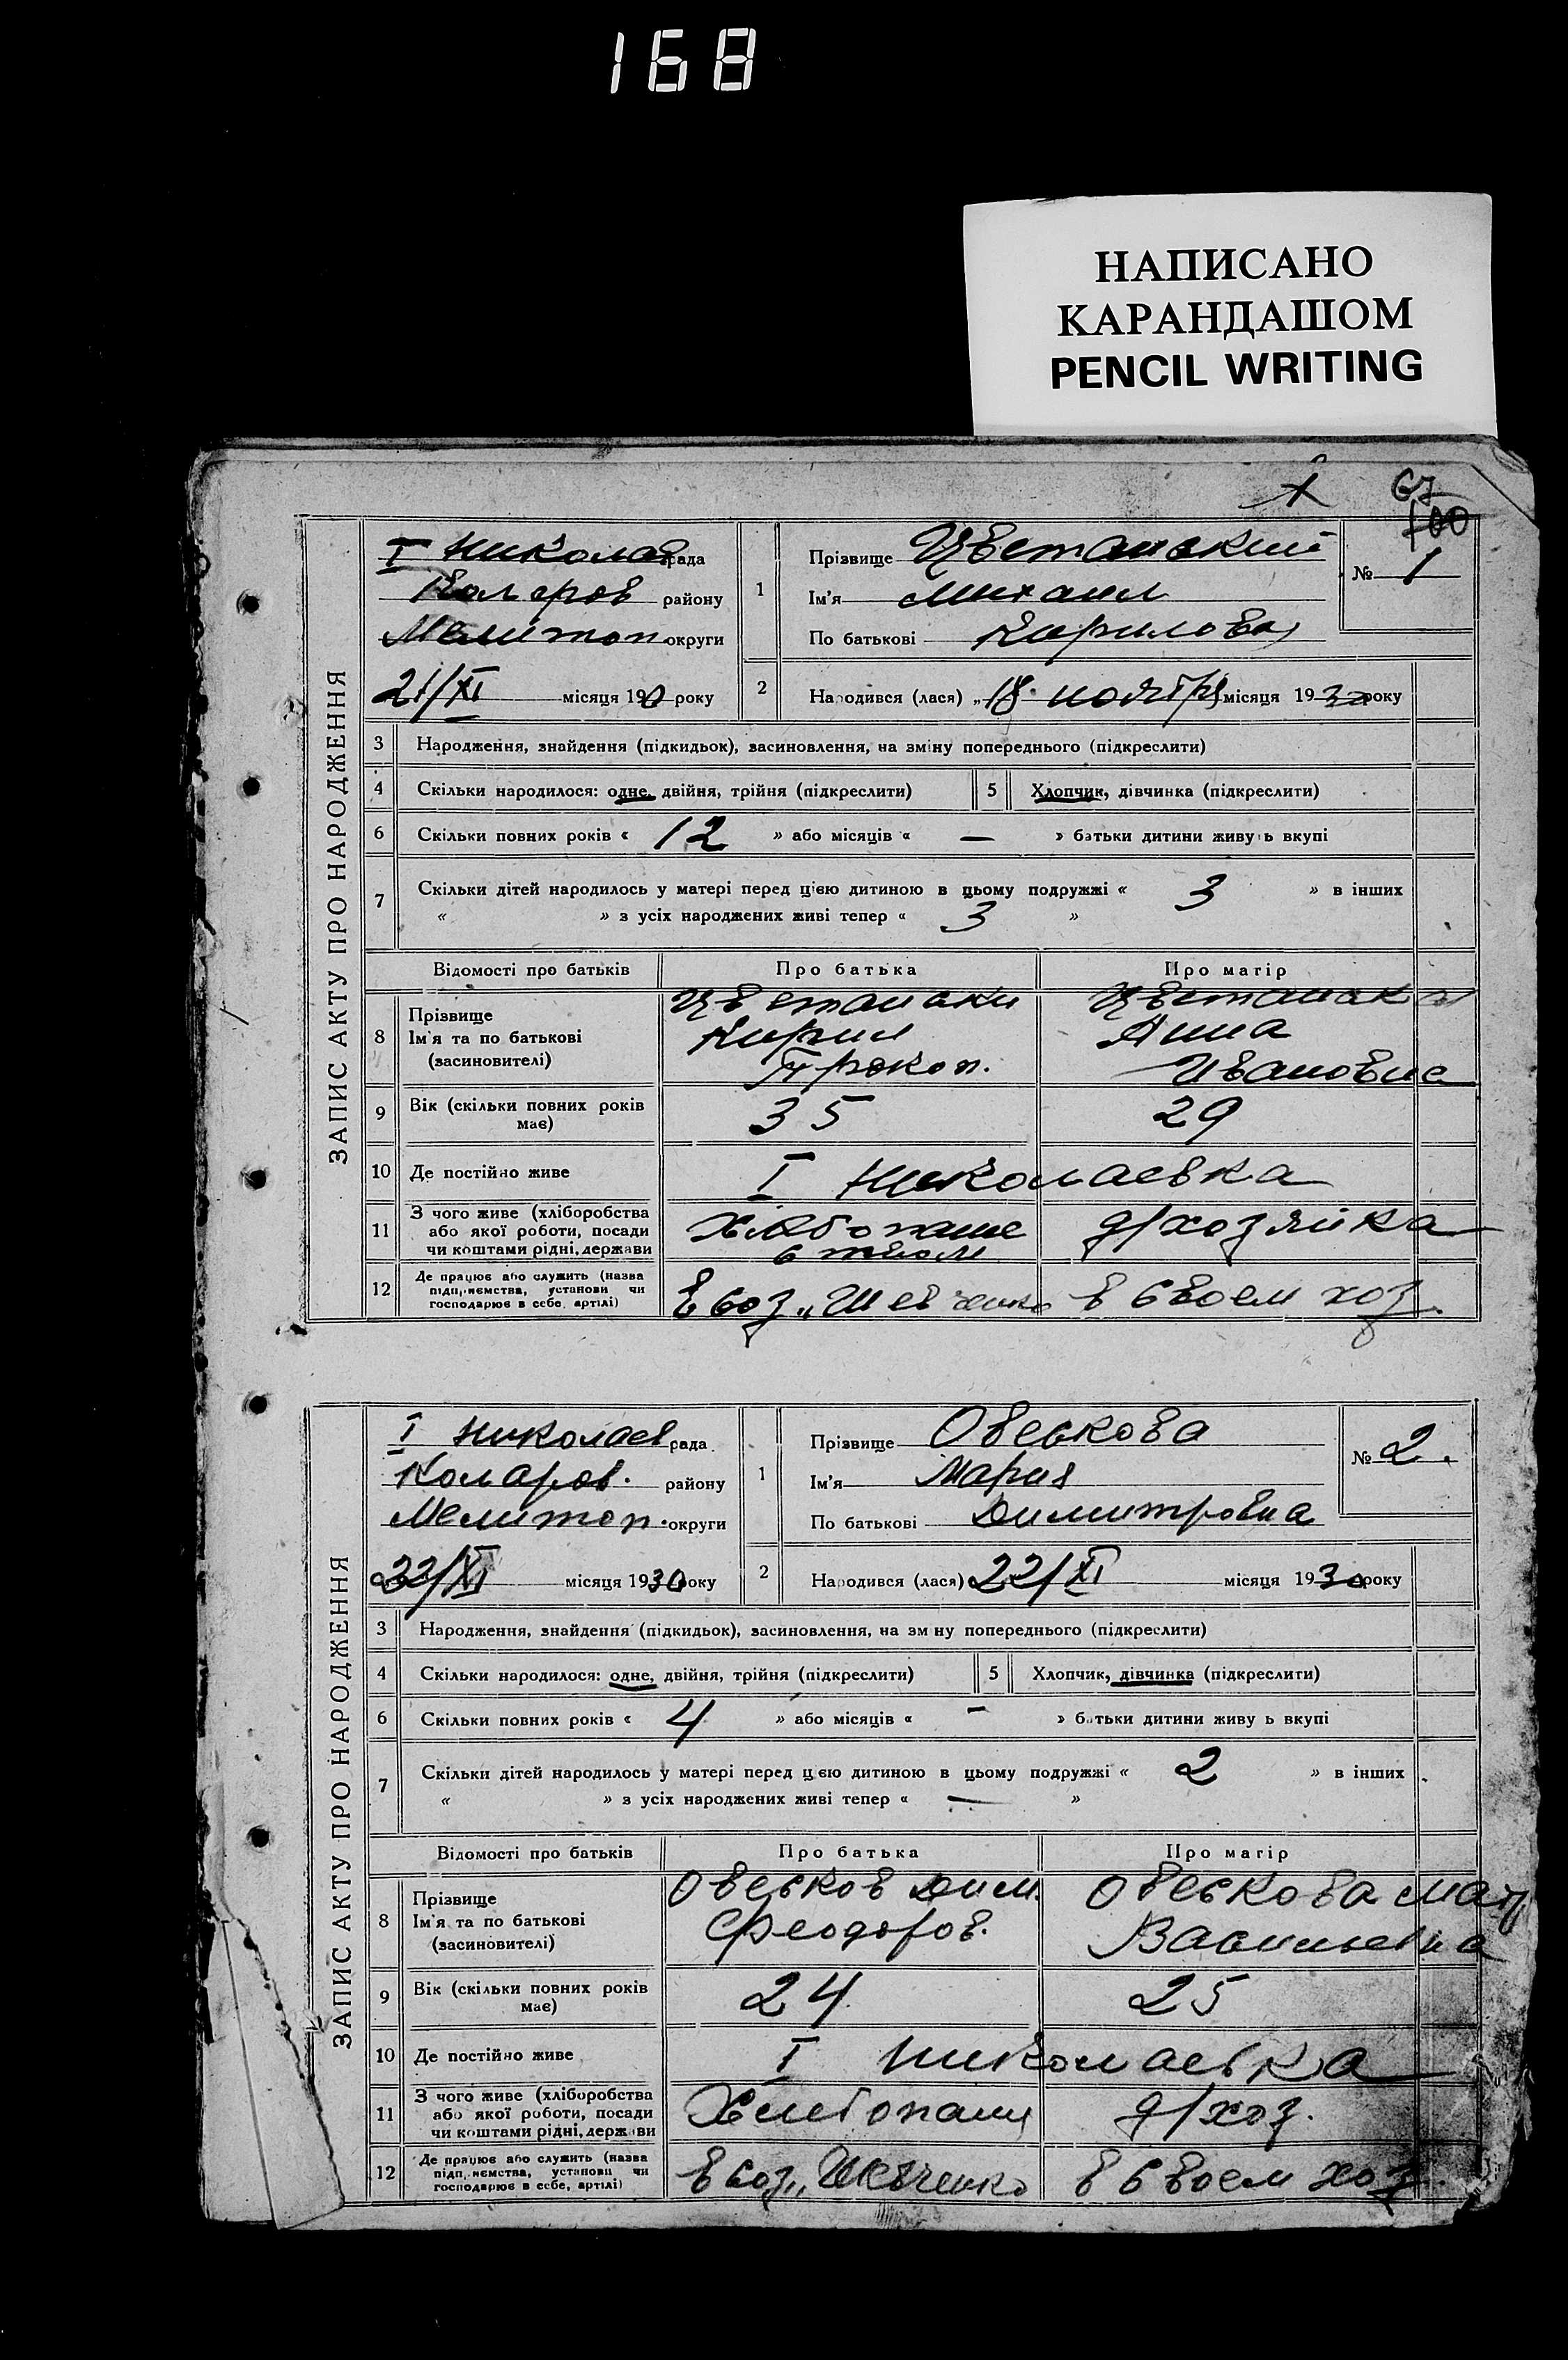 168
НАПИСАНО
КАРАНДАШОМ
PENCIL WRITING
67
100
ЗАПИС АКТУ ПРО НАРОДЖЕННЯ
I Николаев рада
Коларов району
Мелитоп округи
21/XI місяця 1930 року
1
Прізвище Цветанский
Ім'я Михаил
По батькові Кирилович
№ 1
2
Народився (лася) „18 ноября місяця 1930 року
3 Народження, знайдення (підкидьок), засиновлення, на зміну попереднього (підкреслити)
4 Скільки народилося: одне, двійня, трійня (підкреслити)
5 Хлопчик, дівчинка (підкреслити)
6 Скільки повних років « 12 » або місяців « — » батьки дитини живуть вкупі
7 Скільки дітей народилось у матері перед цією дитиною в цьому подружжі « 3 » в інших
« » з усіх народжених живі тепер « 3 »
Відомості про батьків Про батька Про матір
8 Прізвище
Ім'я та по батькові
(засиновителі)
Цветански
Кирил
Прокоп.
Цветанская
Анна
Ивановна
9 Вік (скільки повних років
має) 35 29
10 Де постійно живе I Николаевка
11 З чого живе (хліборобства
або якої роботи, посади
чи коштами рідні, держави
д/хозяйка
12 Де працює або служить (назва
підприємства, установи чи
господарює в себе, артілі)
в соз „Шевченко в своем хоз.
ЗАПИС АКТУ ПРО НАРОДЖЕННЯ
I Николаев рада
Коларов. району
Мелитоп. округи
22/XI місяця 1930 року
1
Прізвище Овескова
Ім'я Мария
По батькові Димитровна
№ 2.
2
Народився (лася) 22/XI місяця 1930 року
3 Народження, знайдення (підкидьок), засиновлення, на зміну попереднього (підкреслити)
4 Скільки народилося: одне, двійня, трійня (підкреслити)
5 Хлопчик, дівчинка (підкреслити)
6 Скільки повних років « 4 » або місяців « – » батьки дитини живуть вкупі
7 Скільки дітей народилось у матері перед цією дитиною в цьому подружжі « 2 » в інших
« » з усіх народжених живі тепер « — »
Відомості про батьків Про батька Про матір
8 Прізвище
Ім'я та по батькові
(засиновителі)
Овесков Дим.
Феодоров.
Овескова
Васильевна
9 Вік (скільки повних років
має) 24 25
10 Де постійно живе I Николаевка
11 З чого живе (хліборобства
або якої роботи, посади
чи коштами рідні, держави
д/хоз.
12 Де працює або служить (назва
підприємства, установи чи
господарює в себе, артілі)
в соз „Шевченко в своем хоз.